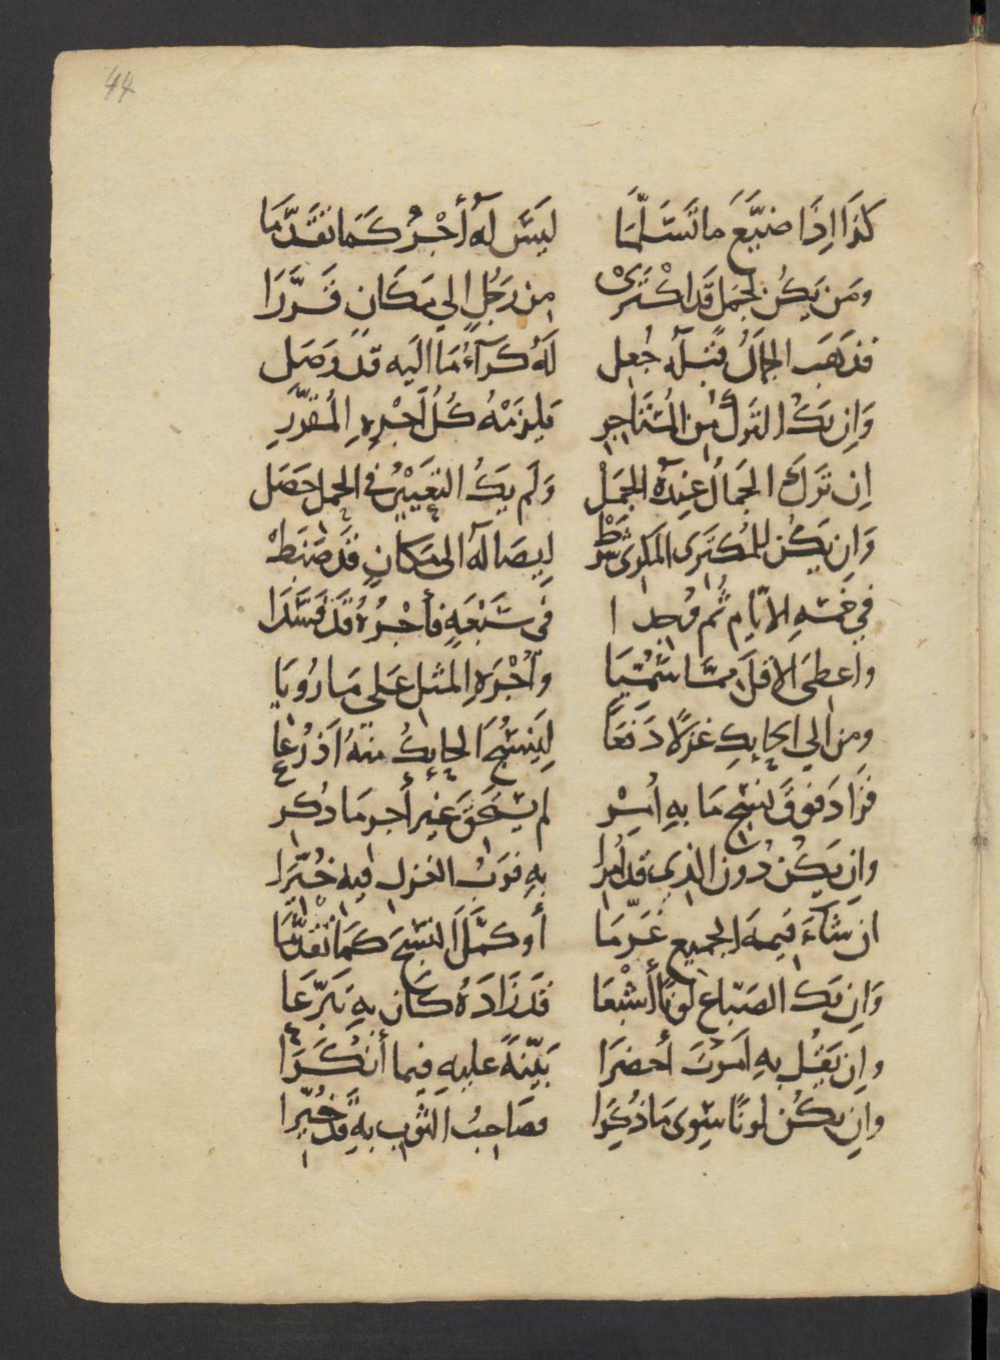 44
كَذَا اِذَا ضيَّعَ ما تَسَلَّمَا ليَسَ لَهُ أَجْرٌ كَمَا تَقَدَّمَا
ومَن يَكُن لجمَلٍ قَد اكْتَرىْ مِن رَجُلٍ الي مَكَانٍ قَرَّرَا
فذهَبَ الجمَّالُ قبْلَه جُعِل لَهُ كرَآءُ مَا اليه قَدْ وَصَل
وَاِن يَكُ التركُ مِن المُسْتَاجِرِ يلزمْهُ كُلُّ اَجْرِهِ المُقَرَّرِ
اِن تَرَكَ الجَمالُ عِندَهُ الجَمَلْ وَلَم يَكُ التغيِيْرُ في الحمل حَصَل
وَاِن يكُن للمُكتَرى المكرِي شَرَطْ اِيصَالَهُ الى مَكَانٍ قَد ضَبَطْ
في خمسَةِ الايّامِ ثم وُجدا في سَبْعَةٍ فأجْرُهُ قَد فَسَدَا
واَعطىَ الاقلَ مِمَّا سُمّيَا وأُجْرَةِ المثلِ عَلى مَا رُويَا
ومن الي الحايِكِ غزلًا دَفَعَا لِيَنسُجَ الحايِكُ منهُ اَذرُعا
فَزَادَ فوقَ نسْجِ مَا بهِ اُمِرْ لم يستَحَقَ غيرَ أجرِ مَا ذُكِر
وان يَكُن دُونَ الذِي قد اُمِرا بهِ فرَبُّ الغزلِ فيهِ خُيِّرَا
ان شَآءَ قيمةَ الجميعِ غَرّمَا أو كمَّلَ النَسْجَ كمَا تقدَّمَا
وَاِن يَكُ الصَبّاغ لونًا أَشْبَعَا قَد زَادَهُ كانَ بهِ تَبَرَّعَا
واِن يَقُل بهِ اَمرْتَ أحضرَا بَيِّنةً عليهِ فيما أنكَرَا
وان يكُن لونًا سِوى مَا ذُكِرَا فصَاحبُ الثَوبِ بهِ قد خُيِّرا